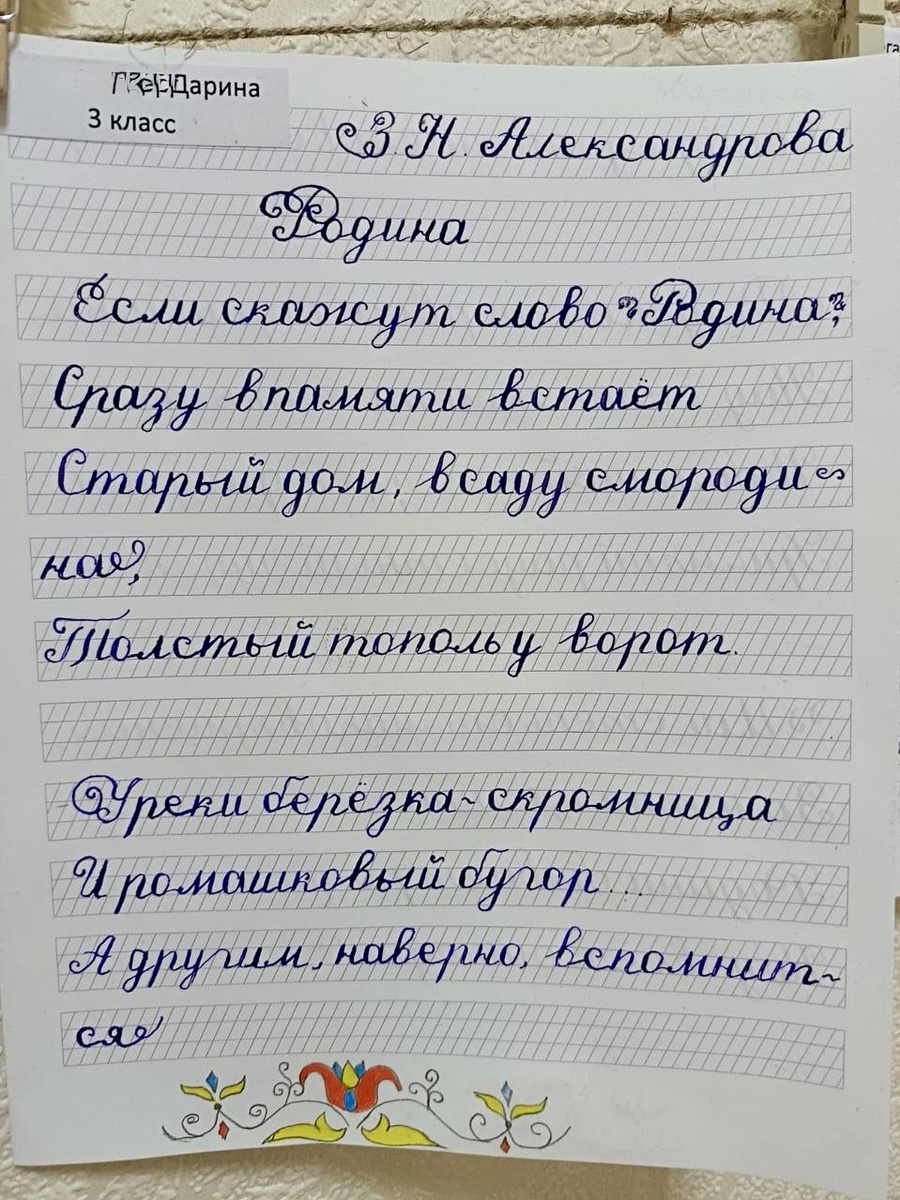 Дарина
3 класс
З. Н. Александрова
Родина
Если скажут слово "Родина",
Сразу в памяти встаёт
Старый дом, в саду смороди-
на,
Толстый тополь у ворот.
У реки берёзка-скромница
И ромашковый бугор...
А другим, наверно, вспомнит-
ся